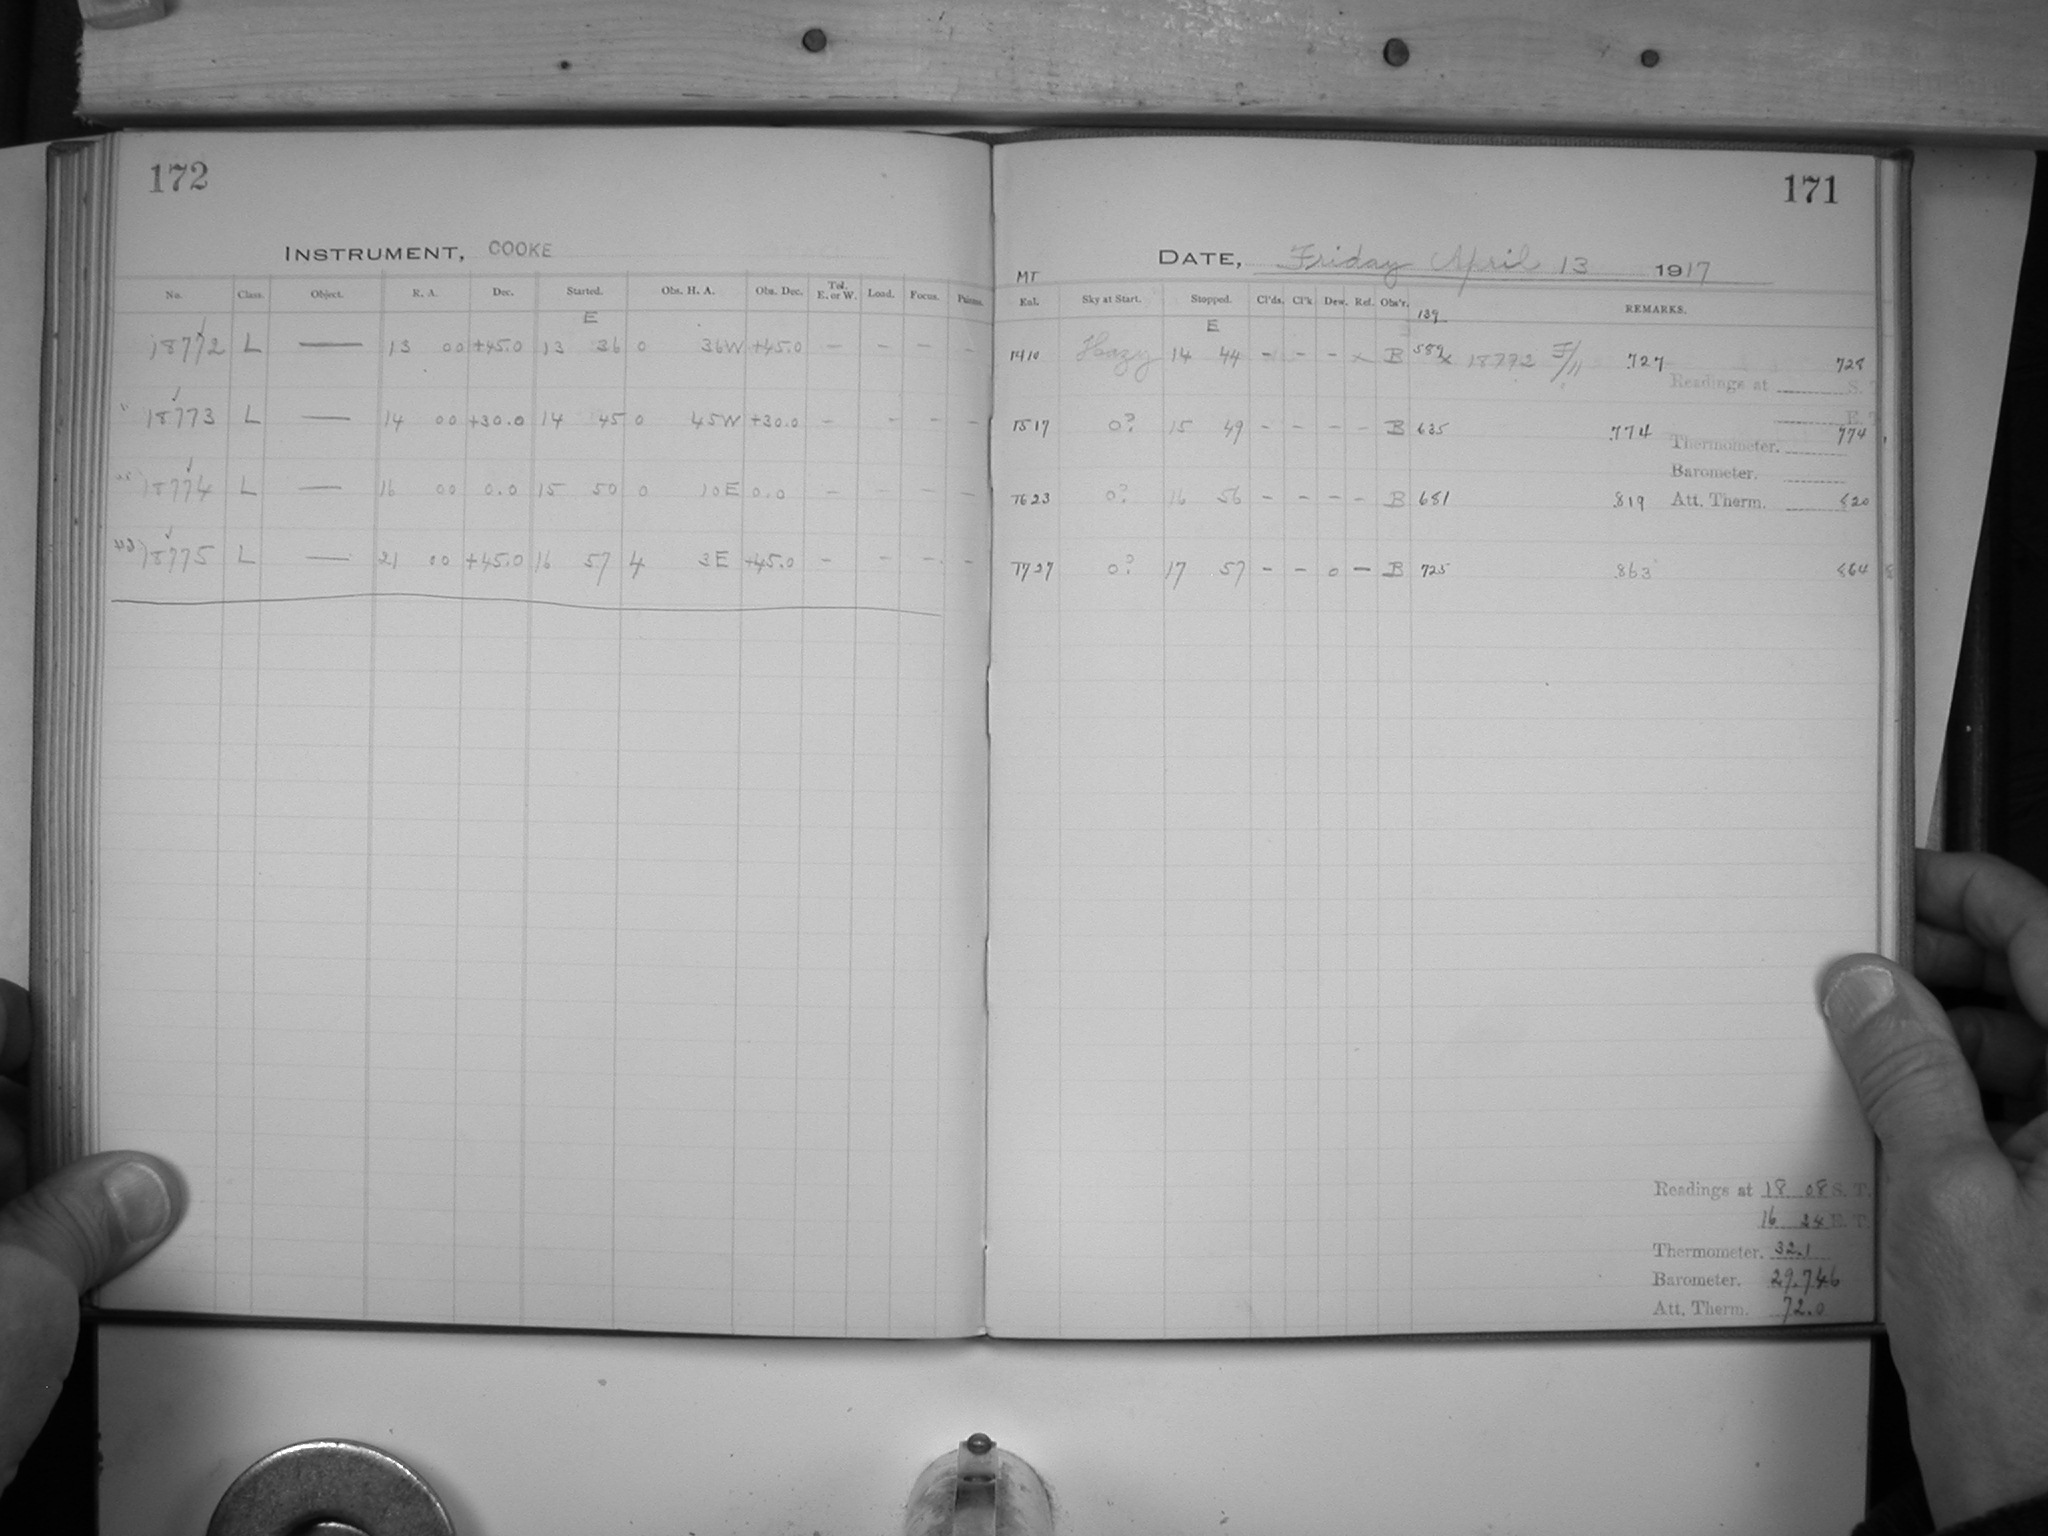 172
INSTRUMENT, COOKE
No. Class. Object. R. A. Dec. Started. Obs. H. A. Obs. Dec. Tel. E. or W. Load. Focus.
E
18772 L — 13 00 +45.0 13 36 0 36W +45.0 — — — —
18773 L — 14 00 +30.0 14 45 0 45W +30.0 — — — —
18774 L — 16 00 0.0 15 50 0 10E 0.0 — — — —
18775 L — 21 00 +45.0 16 57 4 3E +45.0 — — — —
171
DATE, Friday April 13 1917
MT
Sky at Start. Stopped. Cl'ds. Cl'k Dew. Ref. Obs'r. REMARKS.
139
E
1410 Hazy 14 44 — — — x B 589 x 18772 .727 728
Readings at S. T.
E. T.
1517 0? 15 49 — — — — B 635 .774 774
Thermometer.
Barometer.
1623 0? 16 56 — — — — B 681 .819 Att. Therm. 820
1727 0? 17 57 — — 0 — B 725 .863 864
Readings at 18 08 S. T.
16 24 E. T.
Thermometer. 32.1
Barometer. 29.746
Att. Therm. 72.0